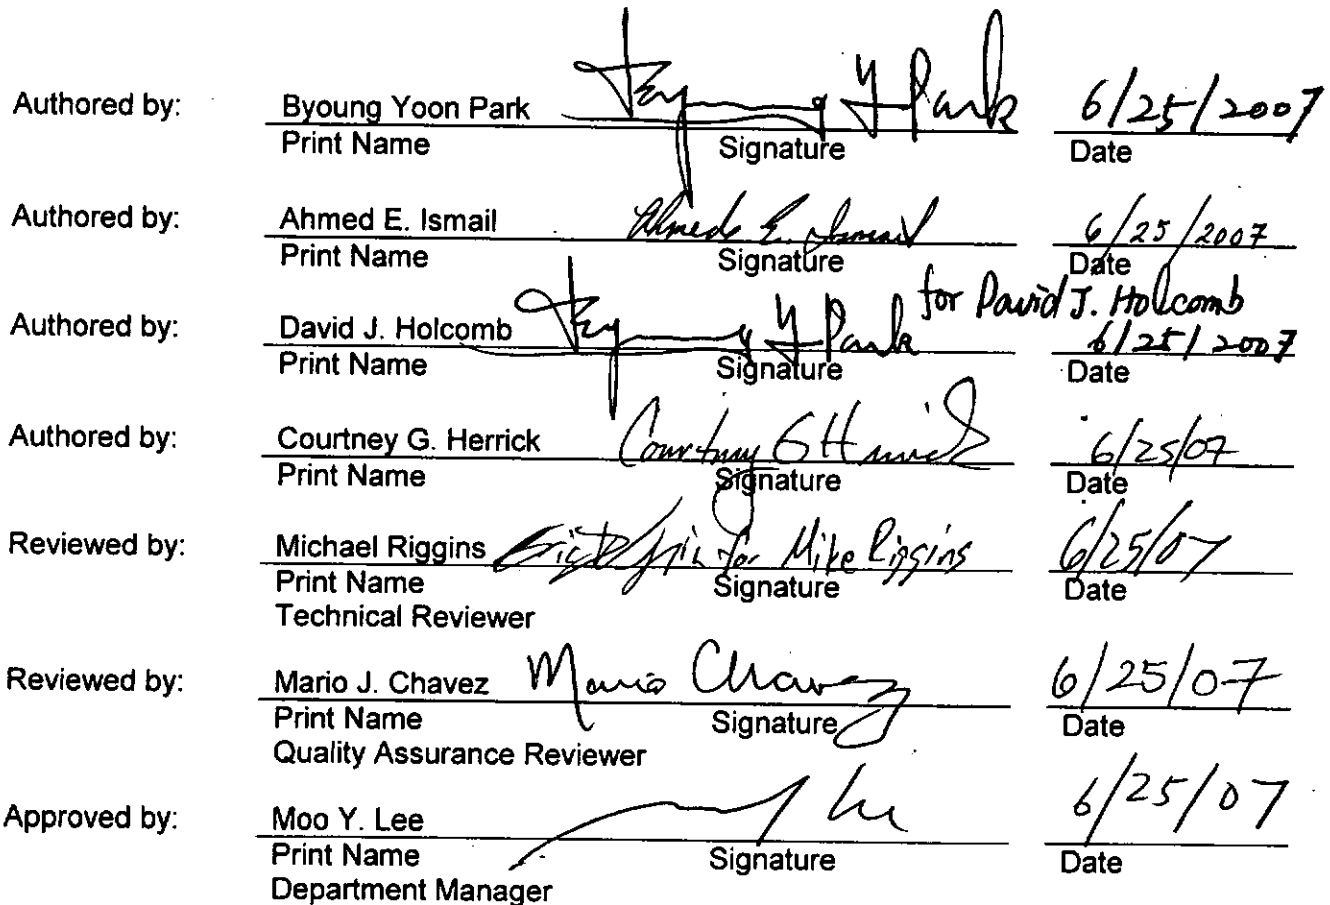 Authored by: Byoung Yoon Park Y Park 6/25/2007
Print Name Signature Date
Authored by: Ahmed E. Ismail Ahmed E. Ismail 6/25/2007
Print Name Signature Date
for David J. Holcomb
Authored by: David J. Holcomb Y Park 6/25/2007
Print Name Signature Date
Authored by: Courtney G. Herrick Courtney G Herrick 6/25/07
Print Name Signature Date
Reviewed by: Michael Riggins for Mike Riggins 6/25/07
Print Name Signature Date
Technical Reviewer
Reviewed by: Mario J. Chavez Mario Chavez 6/25/07
Print Name Signature Date
Quality Assurance Reviewer
Approved by: Moo Y. Lee Lee 6/25/07
Print Name Signature Date
Department Manager